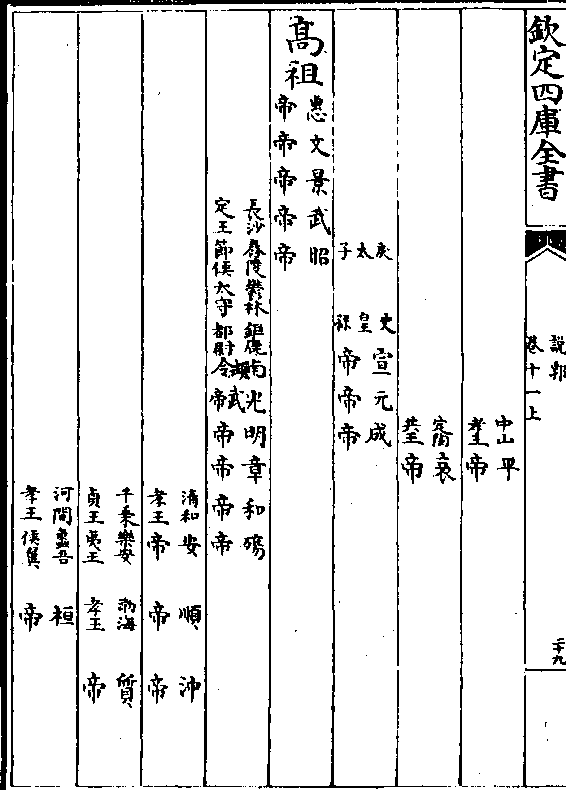 欽定四庫全書
說郛
卷十一上
二十九
中山 平
孝王 帝
定陶 哀
共王 帝
戾太子
史皇孫
宣 元 成
帝 帝 帝
高祖
惠 文 景 武 昭
帝 帝 帝 帝 帝
長沙舂陵鬱林鉅鹿南頓光 明 章 和 殤
定王節侯太守都尉令武帝 帝 帝 帝 帝
清和 安 順 沖
孝王 帝 帝 帝
千乘樂安 渤海 質
貞王夷王 孝王 帝
河間蠡吾 桓
孝王侯翼 帝